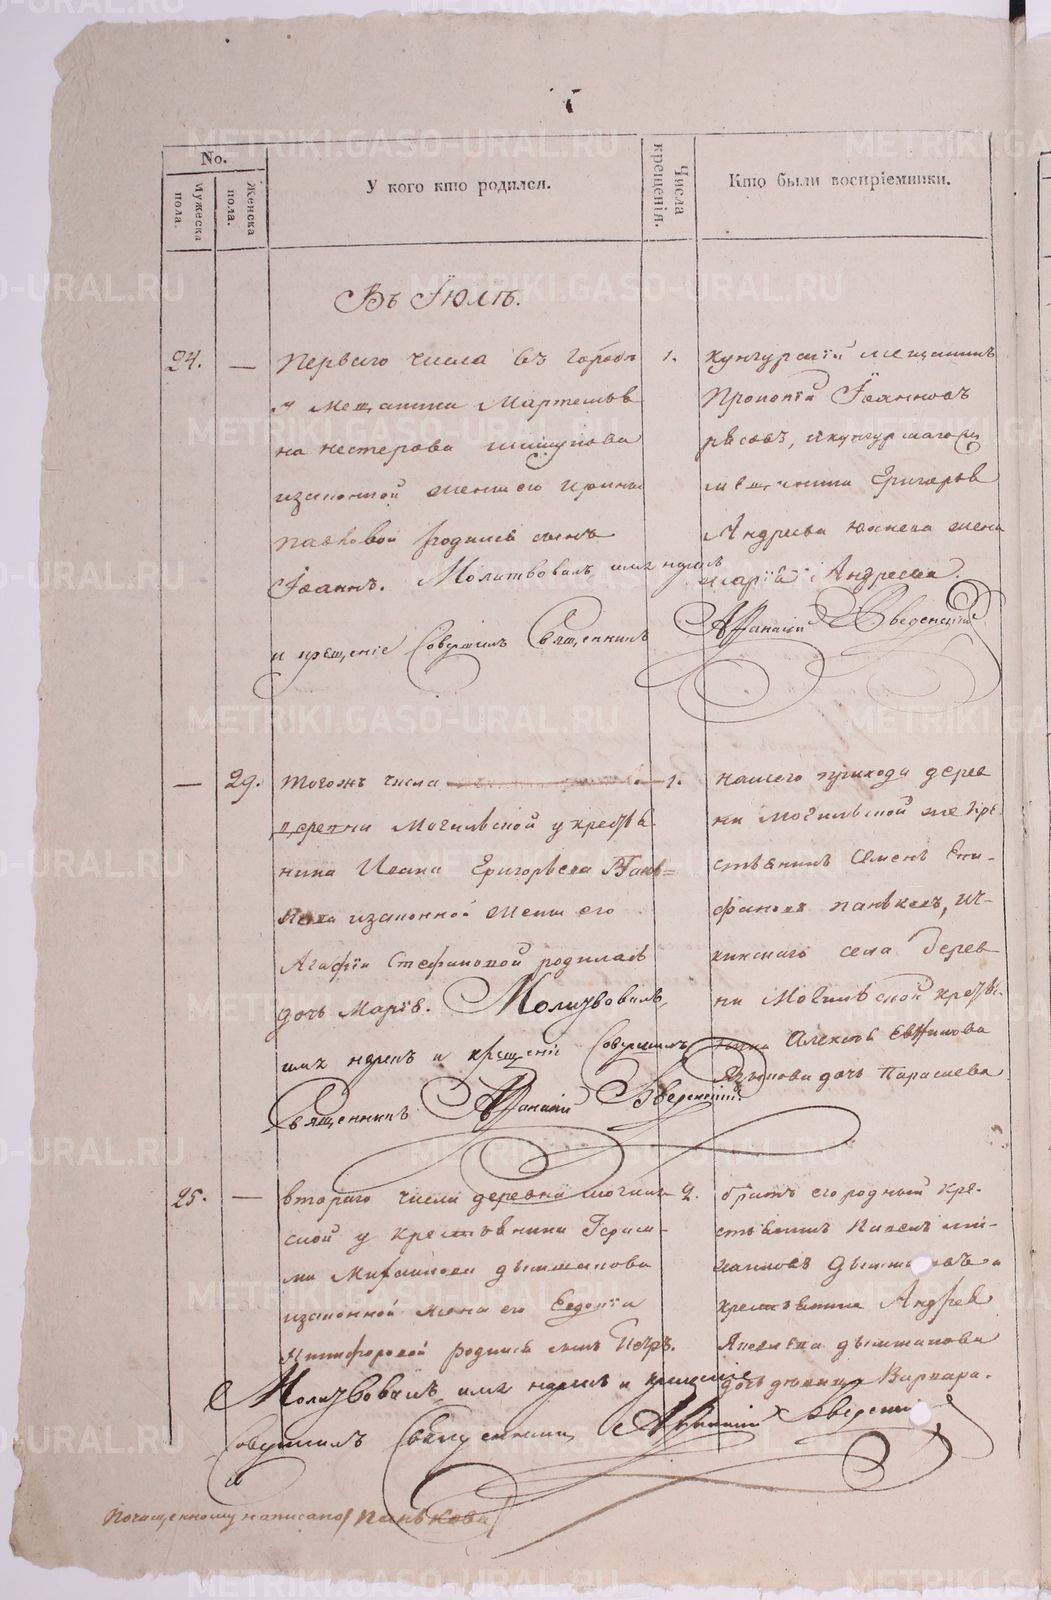 No.
Мужеска пола.
Женска пола.
У кого кто родился.
Числа крещенія.
Кто были воспріемники.
Въ Іюлѣ.
24. — Перваго числа въ городѣ
у мещанина
на нестерова шишунова
изаконной жены его Ирины
родился сынъ
Іоаннъ. Молитвовалъ имя нарекъ
и крещеніе совершилъ Священникъ
1.
кунгурскій мещанинъ
Прокопій Іоанновъ
мещанина Григорья
Андреева жена
марія Андреева.
Афанасий Введенский
— 29. тогожъ числа
деревни Могильской у крестья
нина Ивана Григорьева Пань=
кова изаконной жены его
Агафіи Стефановой родилась
дочь Марія. Молитвовалъ
имя нарекъ и крещеніе совершилъ
Священникъ Афанасий Введенский
1.
нашего прихода дерев
ни могильской же кре
стьянинъ Семенъ Епи-
фановъ паньковъ, Ач-
кинскаго села дерев
ни Могильской крестья
нина Алексея Евфимова
дочь Параскева
25. — втораго числа деревни могиль
ской у крестьянина Гераси-
ма дымшакова
изаконной жены его Евдокіи
Никифоровой родился сынъ Петръ.
Молитвовалъ имя нарекъ и крещеніе
Совершилъ Священникъ Афанасий Введенский
2.
братъ его родный кре-
стьянинъ
крестьянина Андрея
Яковлева дымшакова
дочь девица Варвара.
По чащенному написано Панькова
METRIKI.GASO-URAL.RU